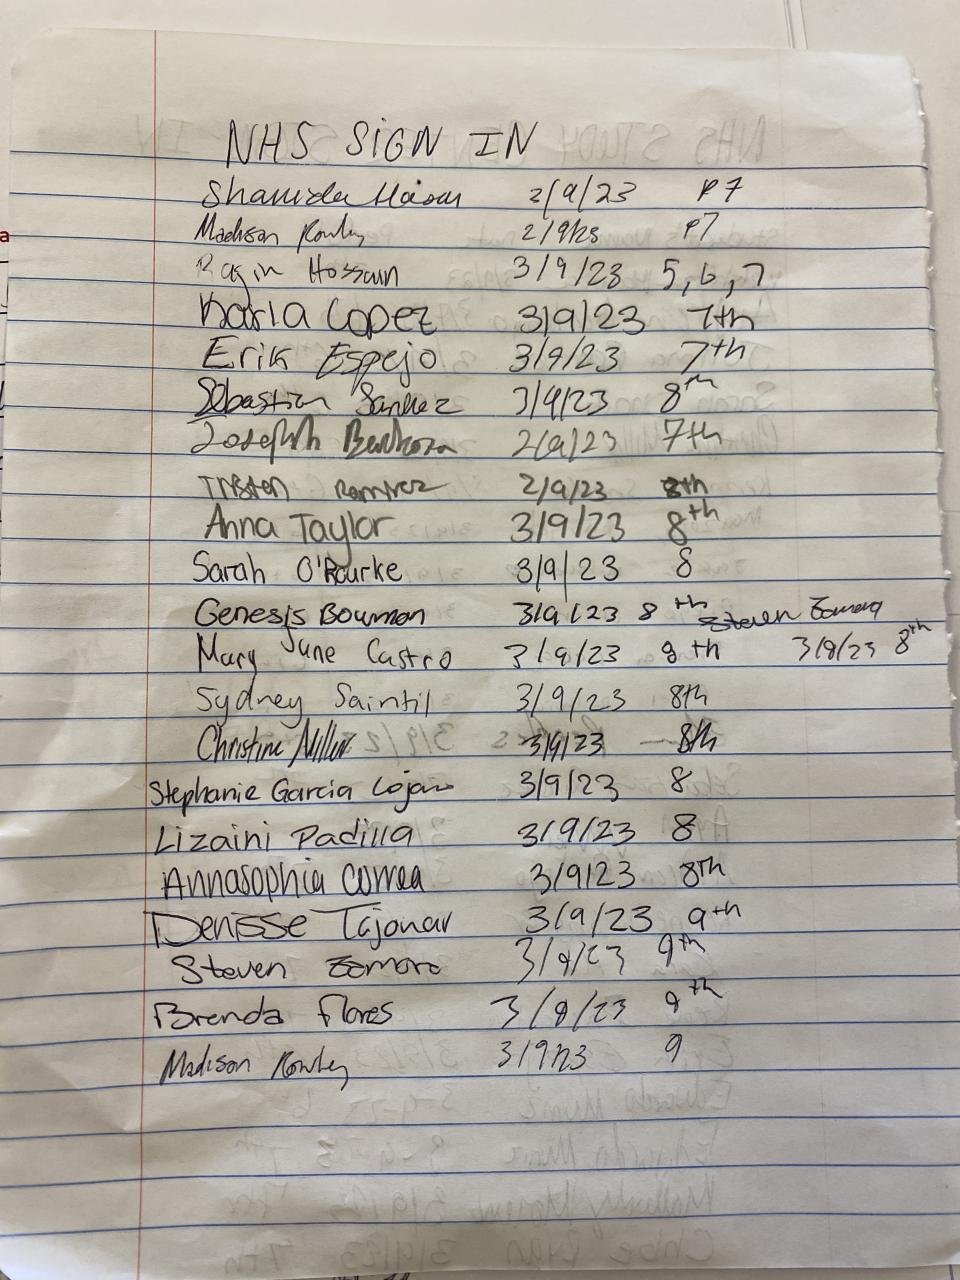 NHS SIGN IN
2/9/23 P7
Madison Rowley 2/9/23 P7
Ragin Hossain 3/9/23 5, 6, 7
Karla Lopez 3/9/23 7th
Erik Espejo 3/9/23 7th
Sebastian Sanchez 3/9/23 8th
Joseph 2/9/23 7th
Tristen Ramirez 2/9/23 8th
Anna Taylor 3/9/23 8th
Sarah O'Rourke 3/9/23 8
Genesis Bowman 3/9/23 8th Steven Zamora
Mary June Castro 3/9/23 8th 3/8/23 8th
Sydney Saintil 3/9/23 8th
Christine Miller 3/9/23 8th
Stephanie Garcia Lojano 3/9/23 8
Lizaini Padilla 3/9/23 8
Annasophia Correa 3/9/23 8th
Denisse Tajonar 3/9/23 9th
Steven Zamora 3/9/23 9th
Brenda Flores 3/8/23 9th
Madison Rowley 3/9/23 9